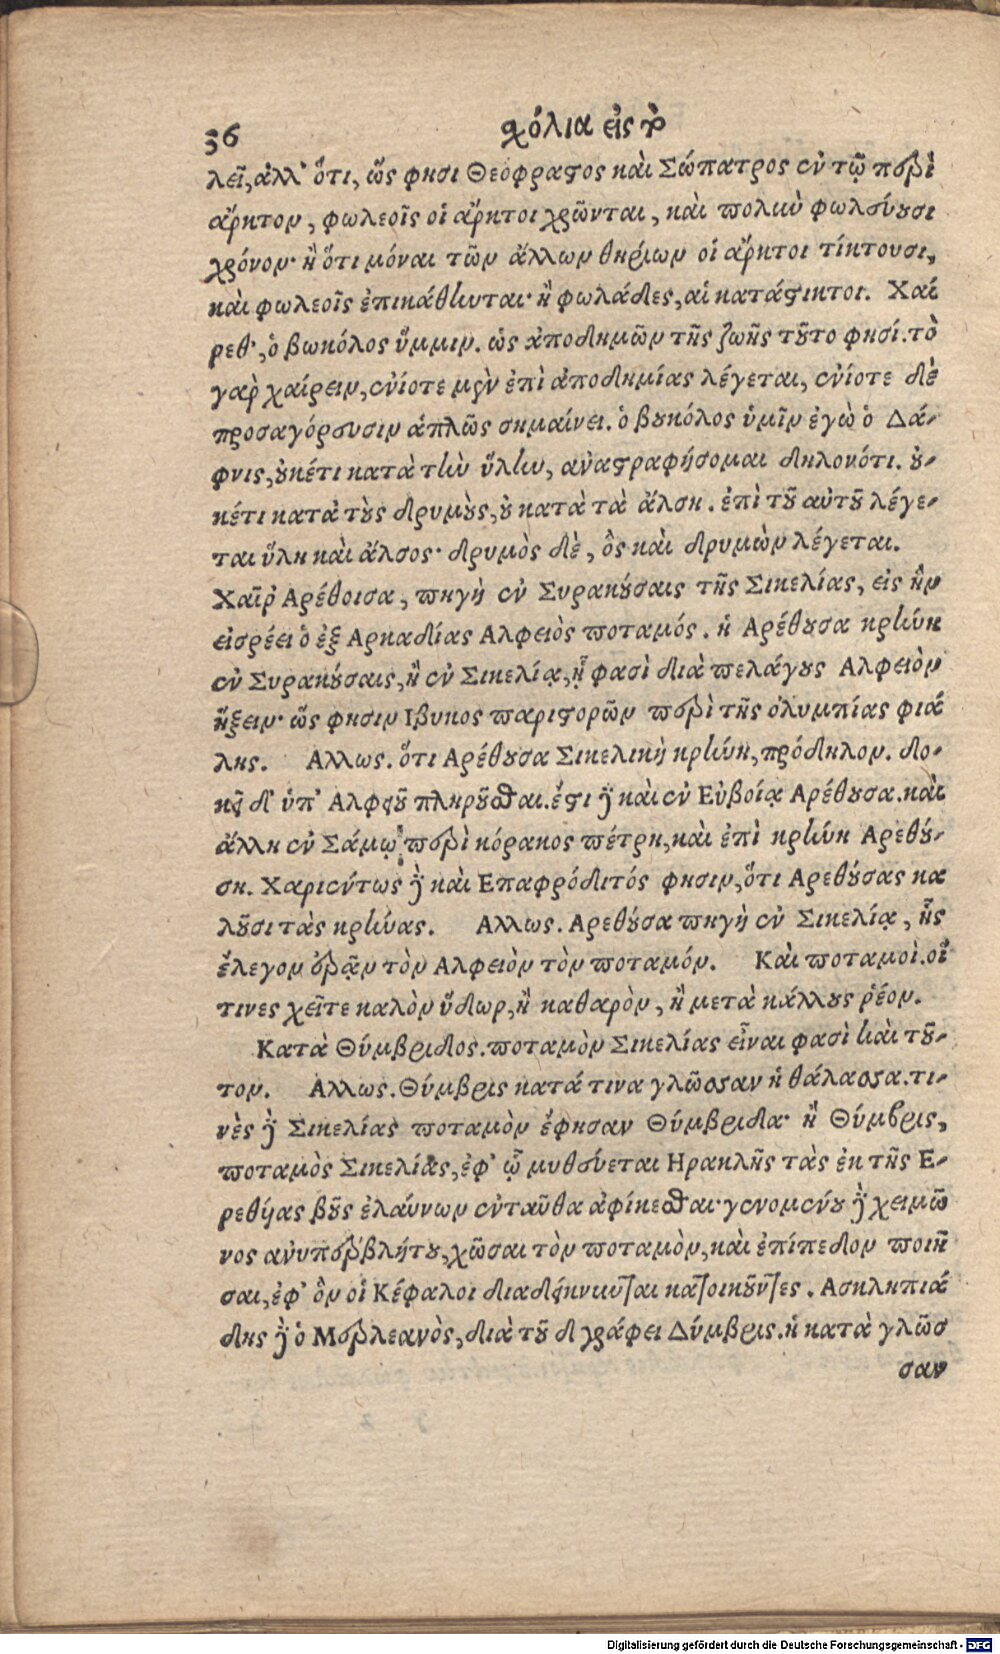 36 σχόλια εἰς τὸ
λεῖ, ἀλλ' ὅτι, ὥς φησι Θεόφραστος καὶ Σώπατρος ἐν τῷ περὶ
ἄρκτον, φωλεοῖς οἱ ἄρκτοι χρῶνται, καὶ πολιὺ φωλεύουσι
χρόνον· ἢ ὅτι μόναι τῶν ἄλλων θηρίων οἱ ἄρκτοι τίκτουσι,
καὶ φωλεοῖς ἐπικάθηνται· ἢ φωλάδες, αἱ κατάστικτοι. Χαί
ρεθ', ὁ βωκόλος ὕμμιν. ὡς ἀποδημῶν τῆς ζωῆς τοῦτο φησί. τὸ
γὰρ χαίρειν, ἐνίοτε μὲν ἐπὶ ἀποδημίας λέγεται, ἐνίοτε δὲ
προσαγόρευσιν ἁπλῶς σημαίνει. ὁ βουκόλος ὑμῖν ἐγὼ ὁ Δά-
φνις, οὐκέτι κατὰ τὴν ὕλην, ἀναστραφήσομαι δηλονότι. οὐ-
κέτι κατὰ τοὺς δρυμοὺς, οὐ κατὰ τὰ ἄλση. ἐπὶ τοῦ αὐτοῦ λέγε-
ται ὕλη καὶ ἄλσος· δρυμὸς δὲ, ὃς καὶ δρυμὼν λέγεται.
Χαῖρ' Αρέθοισα, πηγὴ ἐν Συρακούσαις τῆς Σικελίας, εἰς ἣν
εἰσρέει ὁ ἐξ Αρκαδίας Αλφειὸς ποταμός. ἡ Αρέθουσα κρήνη
ἐν Συρακούσαις, ἢ ἐν Σικελίᾳ, ᾗ φασὶ διὰ πελάγους Αλφειὸν
ἥξειν· ὥς φησιν Ιβυκος παριστορῶν περὶ τῆς ὀλυμπίας φιά
λης. Αλλως. ὅτι Αρέθουσα Σικελικὴ κρήνη, πρόδηλον. δο-
κεῖ δ' ὑπ' Αλφειοῦ πληροῦσθαι. ἔστι δὲ καὶ ἐν Εὐβοίᾳ Αρέθουσα. καὶ
ἄλλη ἐν Σάμῳ περὶ κόρακος πέτρη, καὶ ἐπὶ κρήνη Αρεθού-
ση. Χαριέντως δὲ καὶ Επαφρόδιτός φησιν, ὅτι Αρεθούσας κα
λοῦσι τὰς κρήνας. Αλλως. Αρεθούσα πηγὴ ἐν Σικελίᾳ, ἧς
ἔλεγον ἐρᾷν τὸν Αλφειὸν τὸν ποταμόν. Καὶ ποταμοὶ. οἵ
τινες χεῖτε καλὸν ὕδωρ, ἢ καθαρὸν, ἢ μετὰ κάλλους ῥέον.
Κατὰ Θύμβριδος. ποταμὸν Σικελίας εἶναι φασὶ καὶ τοῦ-
τον. Αλλως. Θύμβρις κατά τινα γλῶσσαν ἡ θάλασσα. τι-
νὲς δὲ Σικελίας ποταμὸν ἔφησαν Θύμβριδα· ἢ Θύμβρις,
ποταμὸς Σικελίας, ἐφ' ᾧ μυθεύεται Ηρακλῆς τὰς ἐκ τῆς Ε-
ρεθήας βοῦς ἐλαύνων ἐνταῦθα ἀφίκεσθαι· γενομένου δὲ χειμῶ
νος ἀνυπερβλήτου, χῶσαι τὸν ποταμὸν, καὶ ἐπίπεδον ποιῆ
σαι, ἐφ' ὃν οἱ Κέφαλοι διαδείκνυνται κατοικοῦντες. Ασκληπιά
δης δὲ ὁ Μερλεανὸς, διὰ τοῦ δ γράφει Δύμβρις. ἡ κατὰ γλῶσ
σαν
Digitalisierung gefördert durch die Deutsche Forschungsgemeinschaft - DFG